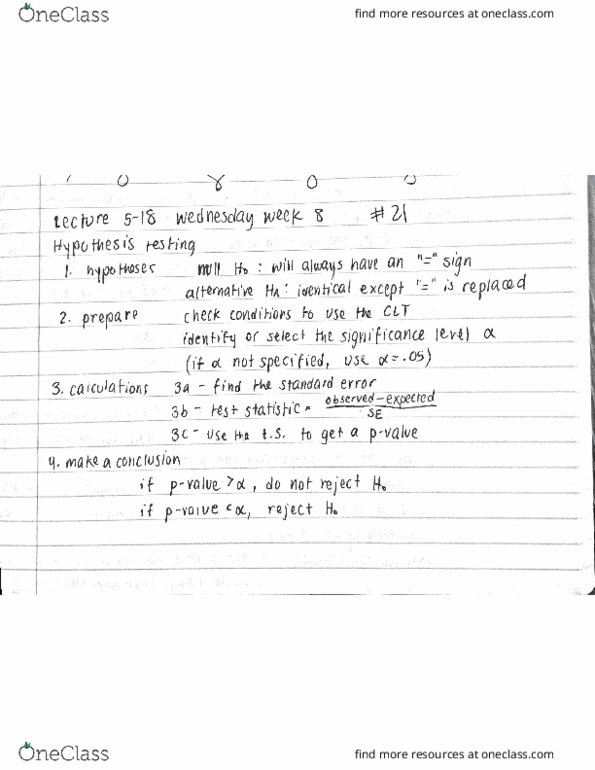 OneClass
find more resources at oneclass.com
Lecture 5-18 Wednesday Week 8 #21
Hypothesis Testing
1. hypotheses null H₀: will always have an "=" sign
alternative Hᴀ: identical except "=" is replaced
2. prepare check conditions to use the CLT
identify or select the significance level α
(if α not specified, use α=.05)
3. calculations 3a - find the standard error
3b - test statistic = observed-expected / SE
3c - use the t.s. to get a p-value
4. make a conclusion
if p-value > α, do not reject H₀
if p-value < α, reject H₀
OneClass
find more resources at oneclass.com